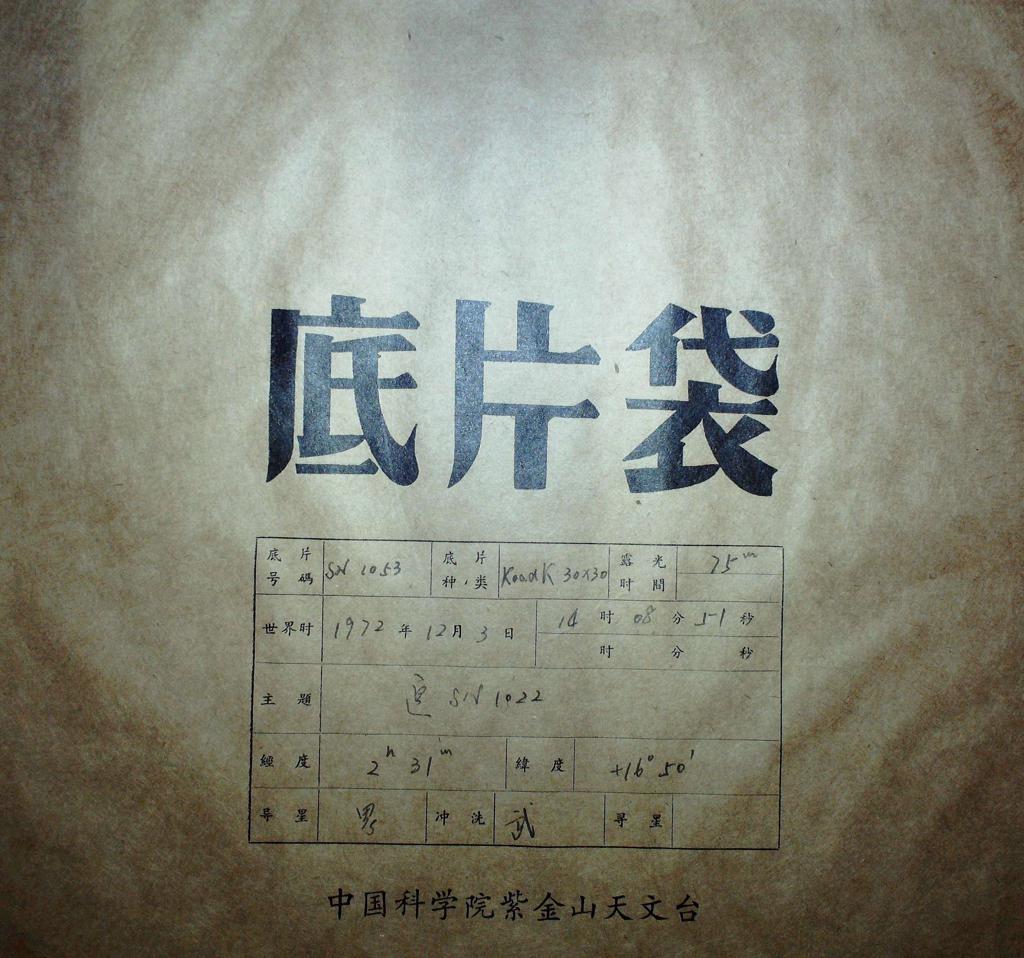 底片袋
底片号碼 SN 1053 底片种类 KodaK 30x30 露光时間 75m
世界时 1972年12月3日 14时08分51秒
时 分 秒
主題 追 SN 1022
經度 2h 31m 緯度 +16° 50'
导星 冲洗 武 寻星
中国科学院紫金山天文台